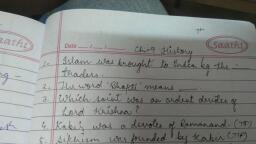 Saathi
Date ...../...../.....
Saathi
Ch-9 History
1. Islam was brought to India by the -
traders.
2. The word "Bhakti" means ___.
3. Which saint was an ardent devotee of
Lord Krishna?
4. Kabir was a devotee of Ramanand. (T/F)
5. Sikhism was founded by Kabir (T/F)